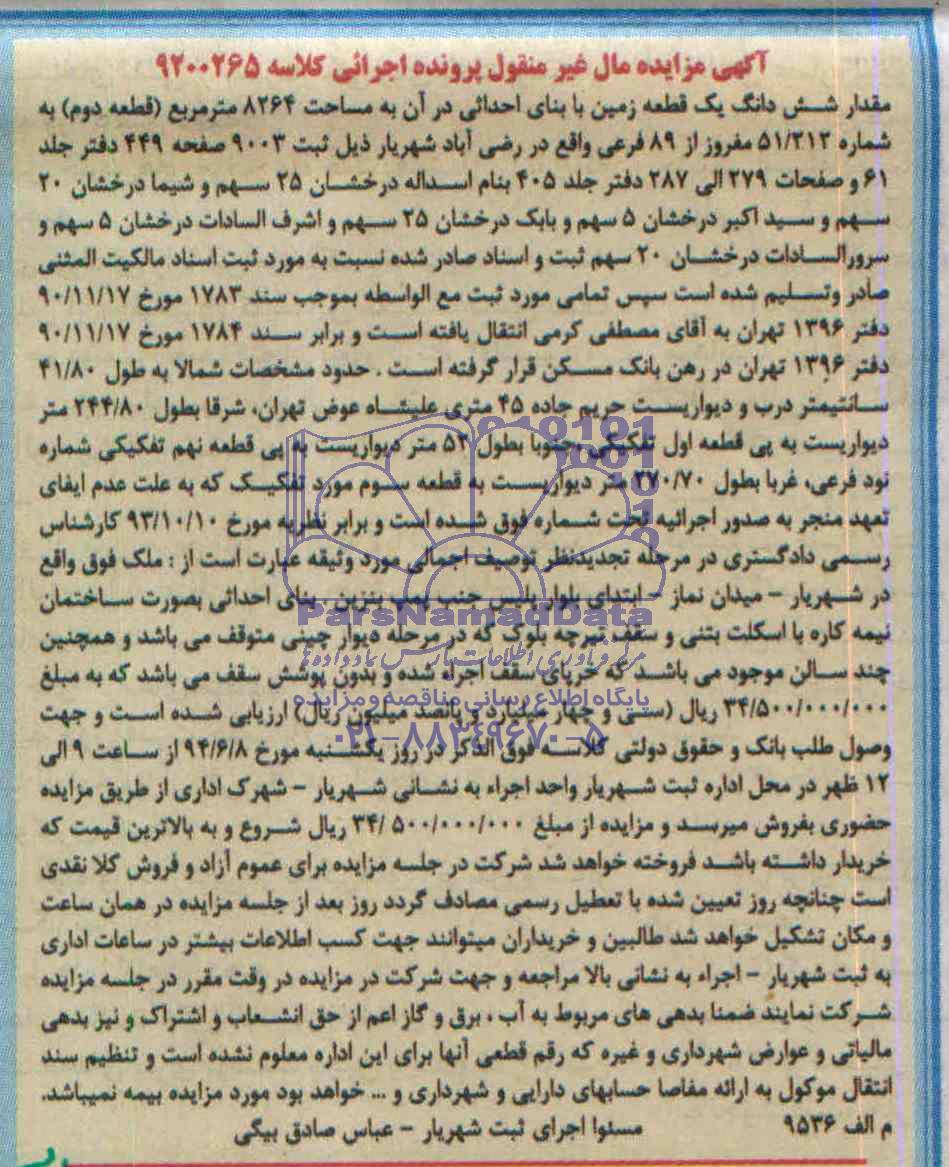 آگهی مزایده مال غیر منقول پرونده اجرائی کلاسه ۹۲۰۰۲۶۵
مقدار شش دانگ یک قطعه زمین با بنای احداثی در آن به مساحت ۸۲۶۴ مترمربع (قطعه دوم) به
شماره ۵۱/۳۱۲ مفروز از ۸۹ فرعی واقع در رضی آباد شهریار ذیل ثبت ۹۰۰۳ صفحه ۴۴۹ دفتر جلد
۶۱ و صفحات ۲۷۹ الی ۲۸۷ دفتر جلد ۴۰۵ بنام اسداله درخشان ۲۵ سهم و شیما درخشان ۲۰
سهم و سید اکبر درخشان ۵ سهم و بابک درخشان ۲۵ سهم و اشرف السادات درخشان ۵ سهم و
سرورالسادات درخشان ۲۰ سهم ثبت و اسناد صادر شده نسبت به مورد ثبت اسناد مالکیت المثنی
صادر وتسلیم شده است سپس تمامی مورد ثبت مع الواسطه بموجب سند ۱۷۸۳ مورخ ۹۰/۱۱/۱۷
دفتر ۱۳۹۶ تهران به آقای مصطفی کرمی انتقال یافته است و برابر سند ۱۷۸۴ مورخ ۹۰/۱۱/۱۷
دفتر ۱۳۹۶ تهران در رهن بانک مسکن قرار گرفته است . حدود مشخصات شمالا به طول ۴۱/۸۰
سانتیمتر درب و دیواریست حریم جاده ۴۵ متری علیشاه عوض تهران، شرقا بطول ۲۴۴/۸۰ متر
دیواریست به پی قطعه اول تفکیکی ،جنوبا بطول ۵۲ متر دیواریست به پی قطعه نهم تفکیکی شماره
نود فرعی، غربا بطول ۲۷۰/۷۰ متر دیواریست به قطعه سوم مورد تفکیک که به علت عدم ایفای
تعهد منجر به صدور اجرائیه تحت شماره فوق شده است و برابر نظریه مورخ ۹۳/۱۰/۱۰ کارشناس
رسمی دادگستری در مرحله تجدیدنظر توصیف اجمالی مورد وثیقه عبارت است از : ملک فوق واقع
در شهریار – میدان نماز – ابتدای بلوار پلیس جنب پمپ بنزین . بنای احداثی بصورت ساختمان
نیمه کاره با اسکلت بتنی و سقف تیرچه بلوک که در مرحله دیوار چینی متوقف می باشد و همچنین
چند سالن موجود می باشد که خرپای سقف اجراء شده و بدون پوشش سقف می باشد که به مبلغ
۳۴/۵۰۰/۰۰۰/۰۰۰ ریال (سی و چهار میلیارد و پانصد میلیون ریال) ارزیابی شده است و جهت
وصول طلب بانک و حقوق دولتی کلاسه فوق الذکر در روز یکشنبه مورخ ۹۴/۶/۸ از ساعت ۹ الی
۱۲ ظهر در محل اداره ثبت شهریار واحد اجراء به نشانی شهریار – شهرک اداری از طریق مزایده
حضوری بفروش میرسد و مزایده از مبلغ ۳۴/ ۵۰۰/۰۰۰/۰۰۰ ریال شروع و به بالاترین قیمت که
خریدار داشته باشد فروخته خواهد شد شرکت در جلسه مزایده برای عموم آزاد و فروش کلا نقدی
است چنانچه روز تعیین شده با تعطیل رسمی مصادف گردد روز بعد از جلسه مزایده در همان ساعت
و مکان تشکیل خواهد شد طالبین و خریداران میتوانند جهت کسب اطلاعات بیشتر در ساعات اداری
به ثبت شهریار – اجراء به نشانی بالا مراجعه و جهت شرکت در مزایده در وقت مقرر در جلسه مزایده
شرکت نمایند ضمنا بدهی های مربوط به آب ، برق و گاز اعم از حق انشعاب و اشتراک و نیز بدهی
مالیاتی و عوارض شهرداری و غیره که رقم قطعی آنها برای این اداره معلوم نشده است و تنظیم سند
انتقال موکول به ارائه مفاصا حسابهای دارایی و شهرداری و ... خواهد بود مورد مزایده بیمه نمیباشد.
م الف ۹۵۳۶ مسئول اجرای ثبت شهریار – عباس صادق بیگی
ParsNamadData
مرکز فرآوری اطلاعات پارس نماد داده ها
پایگاه اطلاع رسانی مناقصه و مزایده
۰۲۱-۸۸۳۴۹۶۷۰-۵